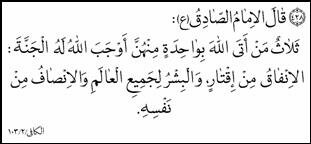 ﴿٤٢٨﴾ قَالَ الإمَامُ الصَّادِقُ (ع):
ثَلَاثٌ مَنْ أَتَى اللهَ بِوَاحِدَةٍ مِنْهُنَّ أَوْجَبَ اللهُ لَهُ الْجَنَّةَ:
الإنْفَاقُ مِنْ إقْتَارٍ، وَالْبِشْرُ لِجَمِيعِ الْعَالَمِ وَالإنْصَافُ مِنْ
نَفْسِهِ.
الكافي/٢/١٠٣